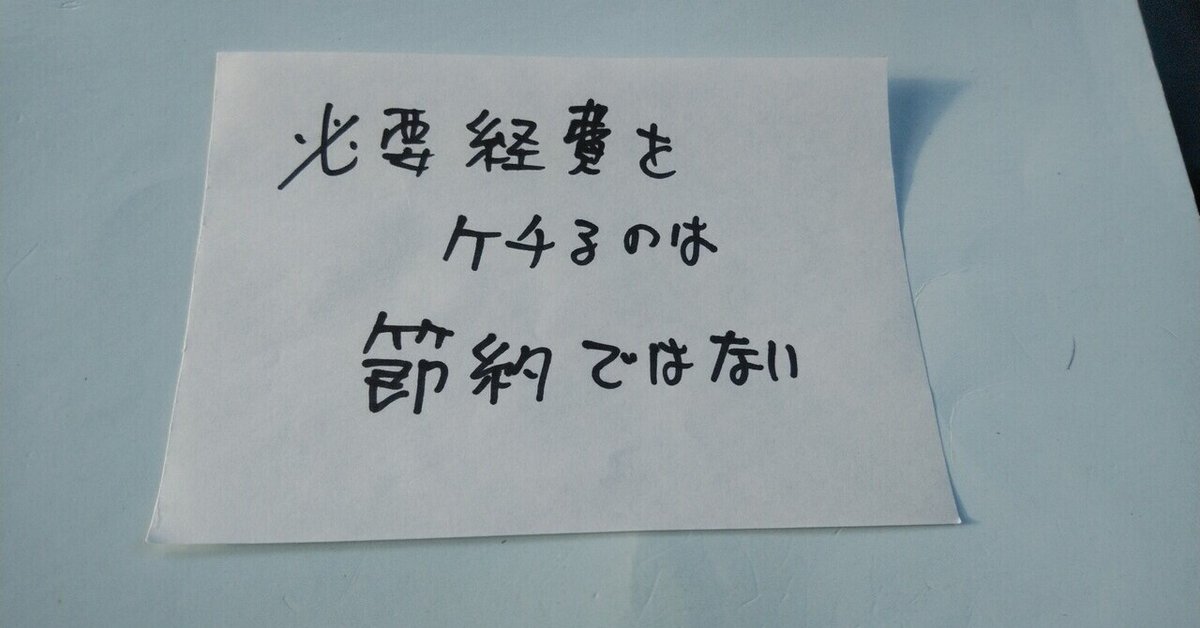 必要経費を
ケチるのは
節約ではない